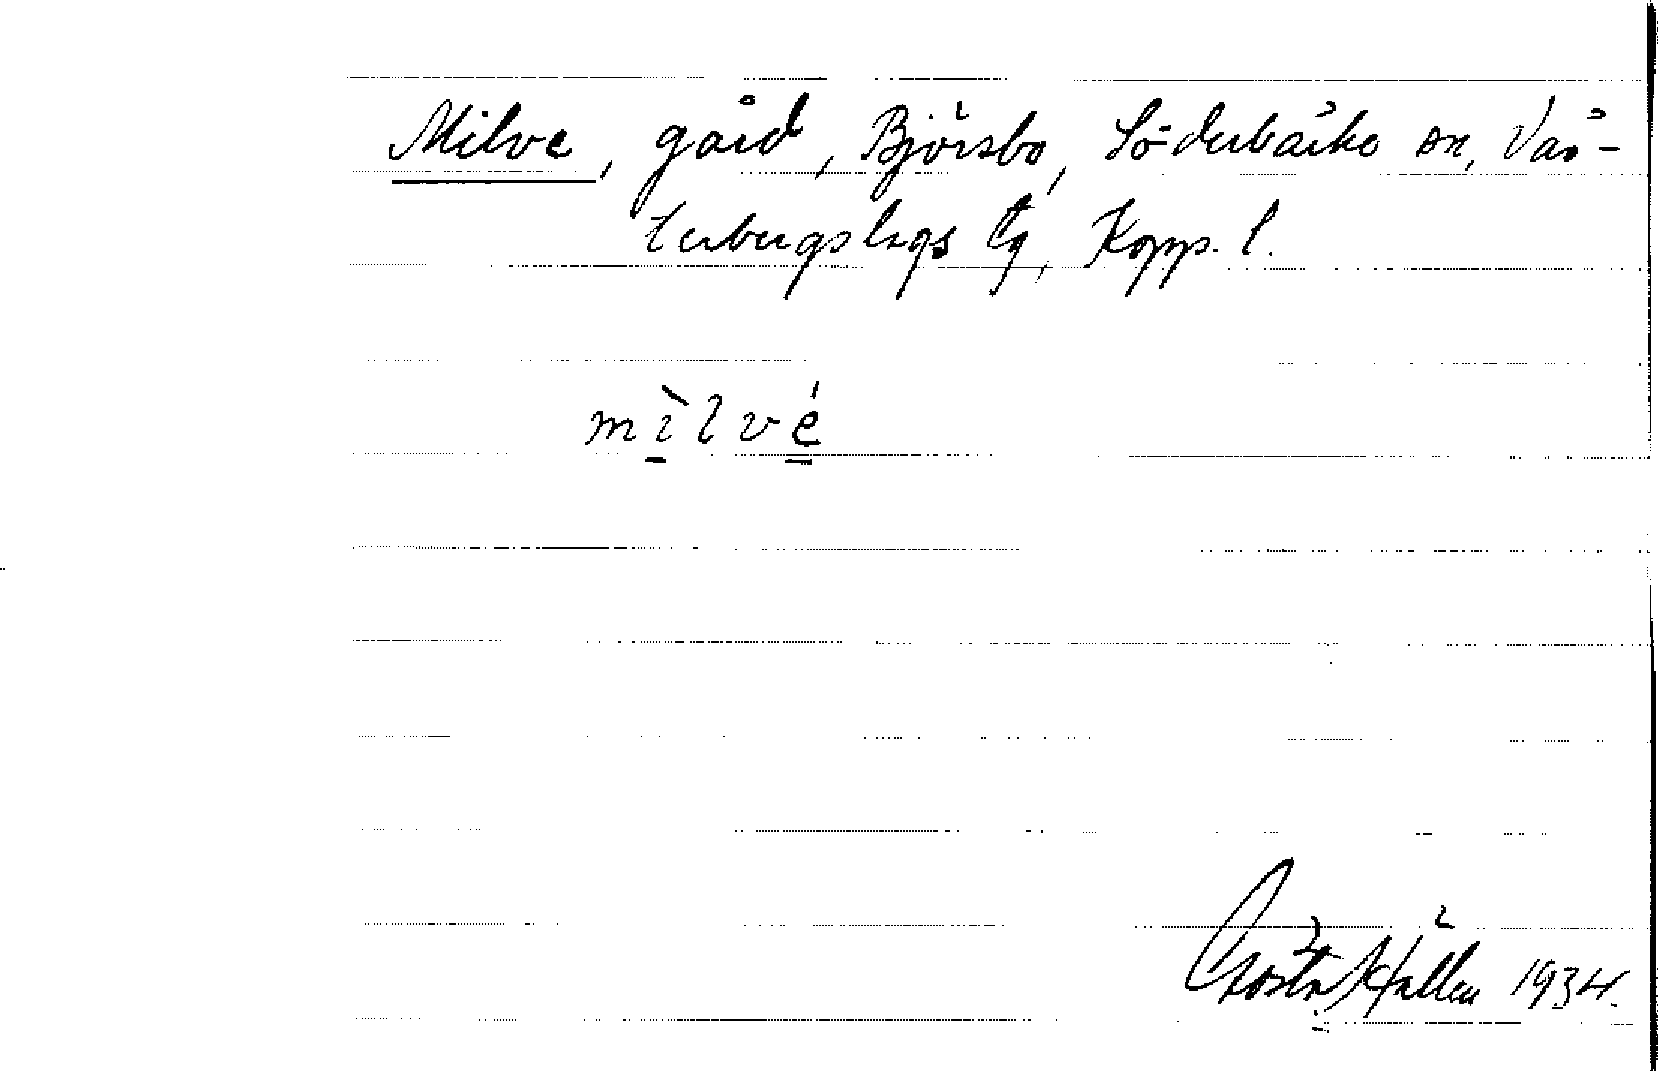 Milve, gård, Björsbo, Söderbärke sn, Väs-
terbergslags tg, Kopp. l.
mìlvé
Gösta Hallen 1934.